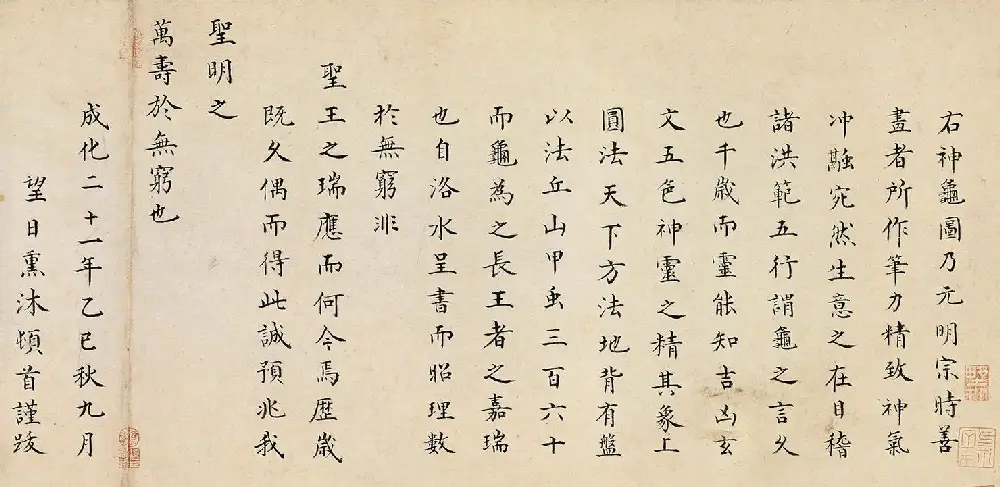 右神龜圖乃元明宗時善
畫者所作筆力精致神氣
冲融宛然生意之在目稽
諸洪範五行謂龜之言久
也千歲而靈能知吉凶玄
文五色神靈之精其象上
圓法天下方法地背有盤
以法丘山甲虫三百六十
而龜為之長王者之嘉瑞
也自洛水呈書而昭理數
於無窮非
聖王之瑞應而何今焉歷歲
既久偶而得此誠預兆我
聖明之
萬壽於無窮也
成化二十一年乙巳秋九月
望日熏沐頓首謹跋